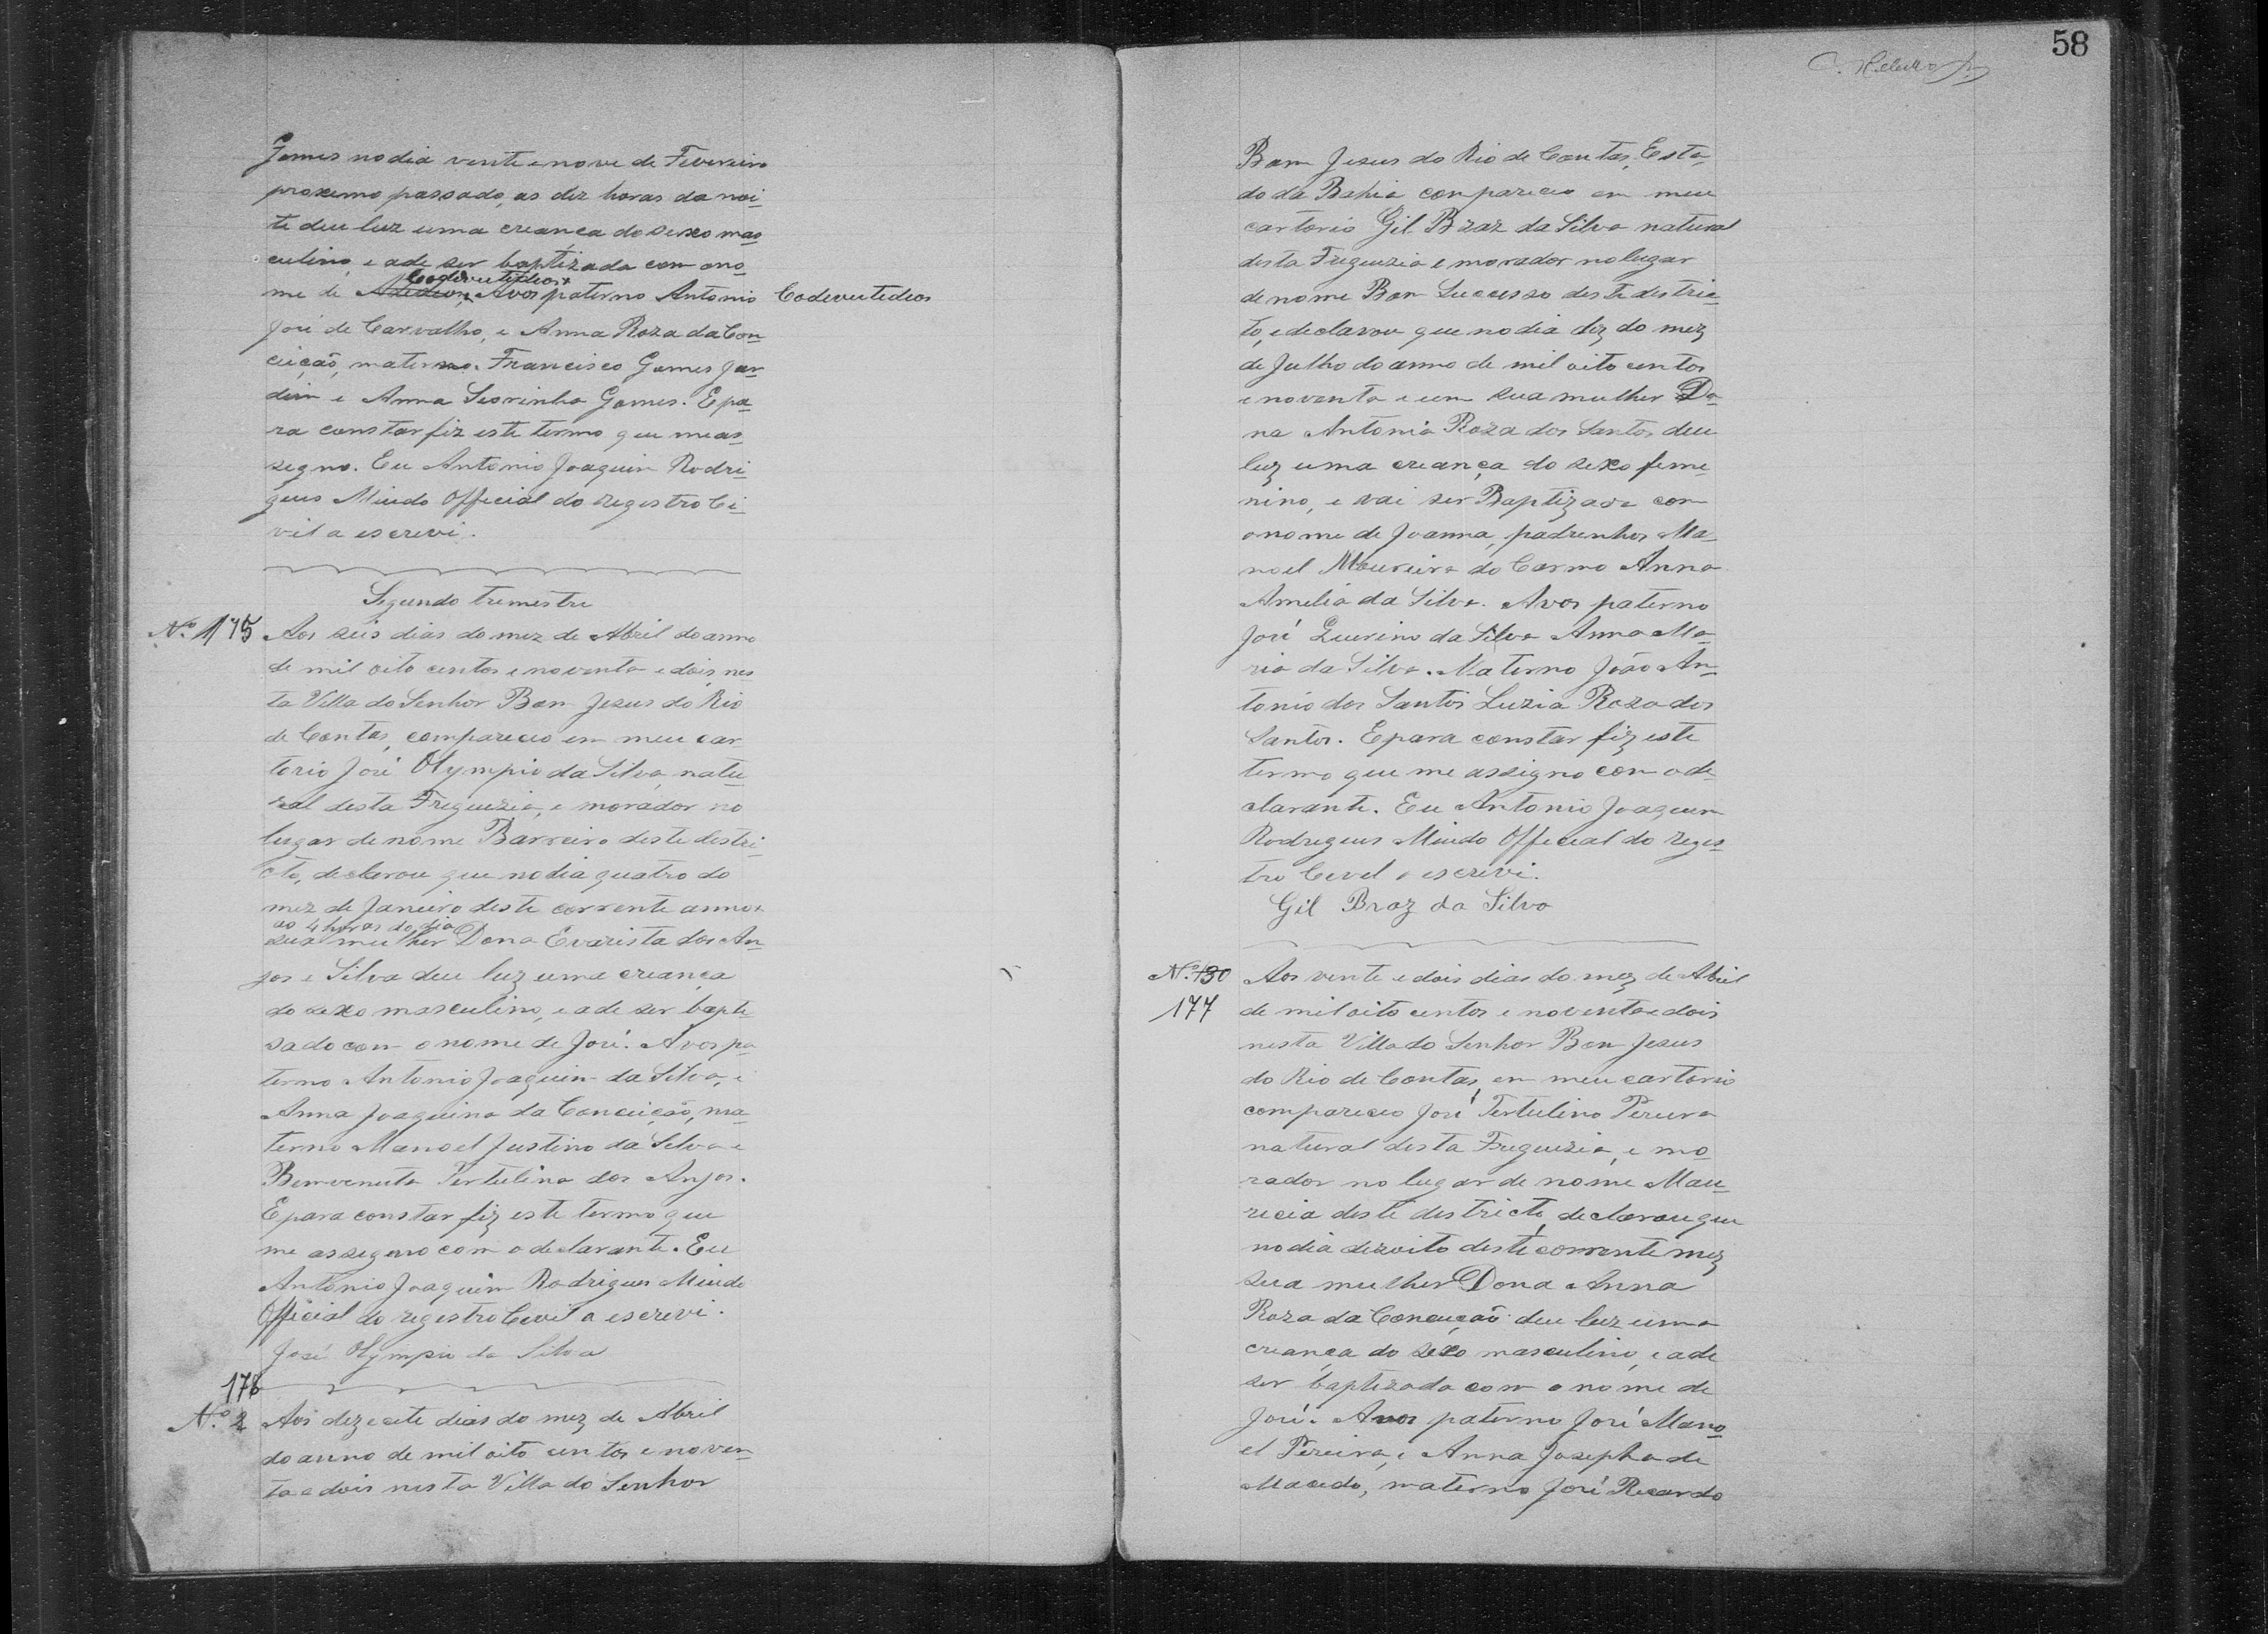 Gomes no dia vente e nove de Fevereiro
proximo passado, as dez horas da noi
te deu luz uma creança do sexo mas
culino, e ade ser baptizada com ono
Codevutideos
me de Avos paterno Antonio Codevutideos
José de Carvalho, e Anna Roza da Con
ceição, materno. Francisco Gomes Jar
dim e Anna Gomes. E pa
ra constar fiz este termo que me as
segno. Eu Antonio Joaquim Rodri
gues Miudo Official do registro Ci
vil a escrevi.
Segundo trimestre
N.º 175 Aos seis dias do mez de Abril do anno
de mil oito centos e noventa e dois, nes
ta Villa do Senhor Bom Jesus do Rio
de Contas, compareceo em meu car
torio José Olympio da Silva, natu
ral desta Freguezia, e morador no
lugar de nome Barreiro deste destri
cto, declarou que no dia quatro do
mez de Janeiro deste corrente anno
as 4 horas do dia
sua mulher Dona Evarista dos An
jos e Silva deu luz uma creança
do sexo masculino, e ade ser bapti
sado com o nome de José. Avos pa
terno Antonio Joaquim da Silva, e
Anna Joaquina da Conceição, ma
terno Manoel Justino da Silva e
Bemvenuta Tertulina dos Anjos.
E para constar fiz este termo que
me assegno com o declarante. Eu
Antonio Joaquim Rodrigues Miudo
Official do registro Cevil a escrevi.
José Olympio da Silva
176
N.º 2 Aos dezecete dias do mez de Abril
do anno de mil oito centos e noven
ta e dois nesta Villa do Senhor
58
Bom Jesus do Rio de Contas, Esta
do da Bahia compareceo em meu
cartorio Gil Braz da Silva natural
desta Freguezia e morador no lugar
de nome Bom Successo deste destric
to, e declarou que no dia dez do mez
de Julho do anno de mil oito centos
e noventa e um sua mulher Do
na Antonia Roza dos Santos deu
luz uma creança do sexo feme
nino, e vai ser Baptizada com
o nome de Joanna, padrenhos Ma
noel Moureira do Carmo Anna
Amelia da Silva. Avos paterno
José Querino da Silva Anna Ma
ria da Silva. Materno João An
tonio dos Santos Luzia Roza dos
Santos. E para constar fiz este
termo que me assigno com o de
clarante. Eu Antonio Joaquim
Rodregues Miudo Offecial do reges
tro Cevel o escrevi.
Gil Braz da Silva
N.º 130 Aos vente e dois dias do mez de Abril
177 de mil oito centos e noventa e dois
nesta Villa do Senhor Bom Jesus
do Rio de Contas, em meu cartorio
compareceo José Tertulino Pereira
natural desta Freguezia, e mo
rador no lugar de nome Mau
ricia deste destricto, declarou que
no dia dezoito deste corrente mez
sua mulher Dona Anna
Roza da Conceição deu luz uma
creança do sexo masculino, e ade
ser baptizada com o nome de
José. Avos paterno José Mano
el Pereira, e Anna Josepha de
Macedo, materno José Recardo